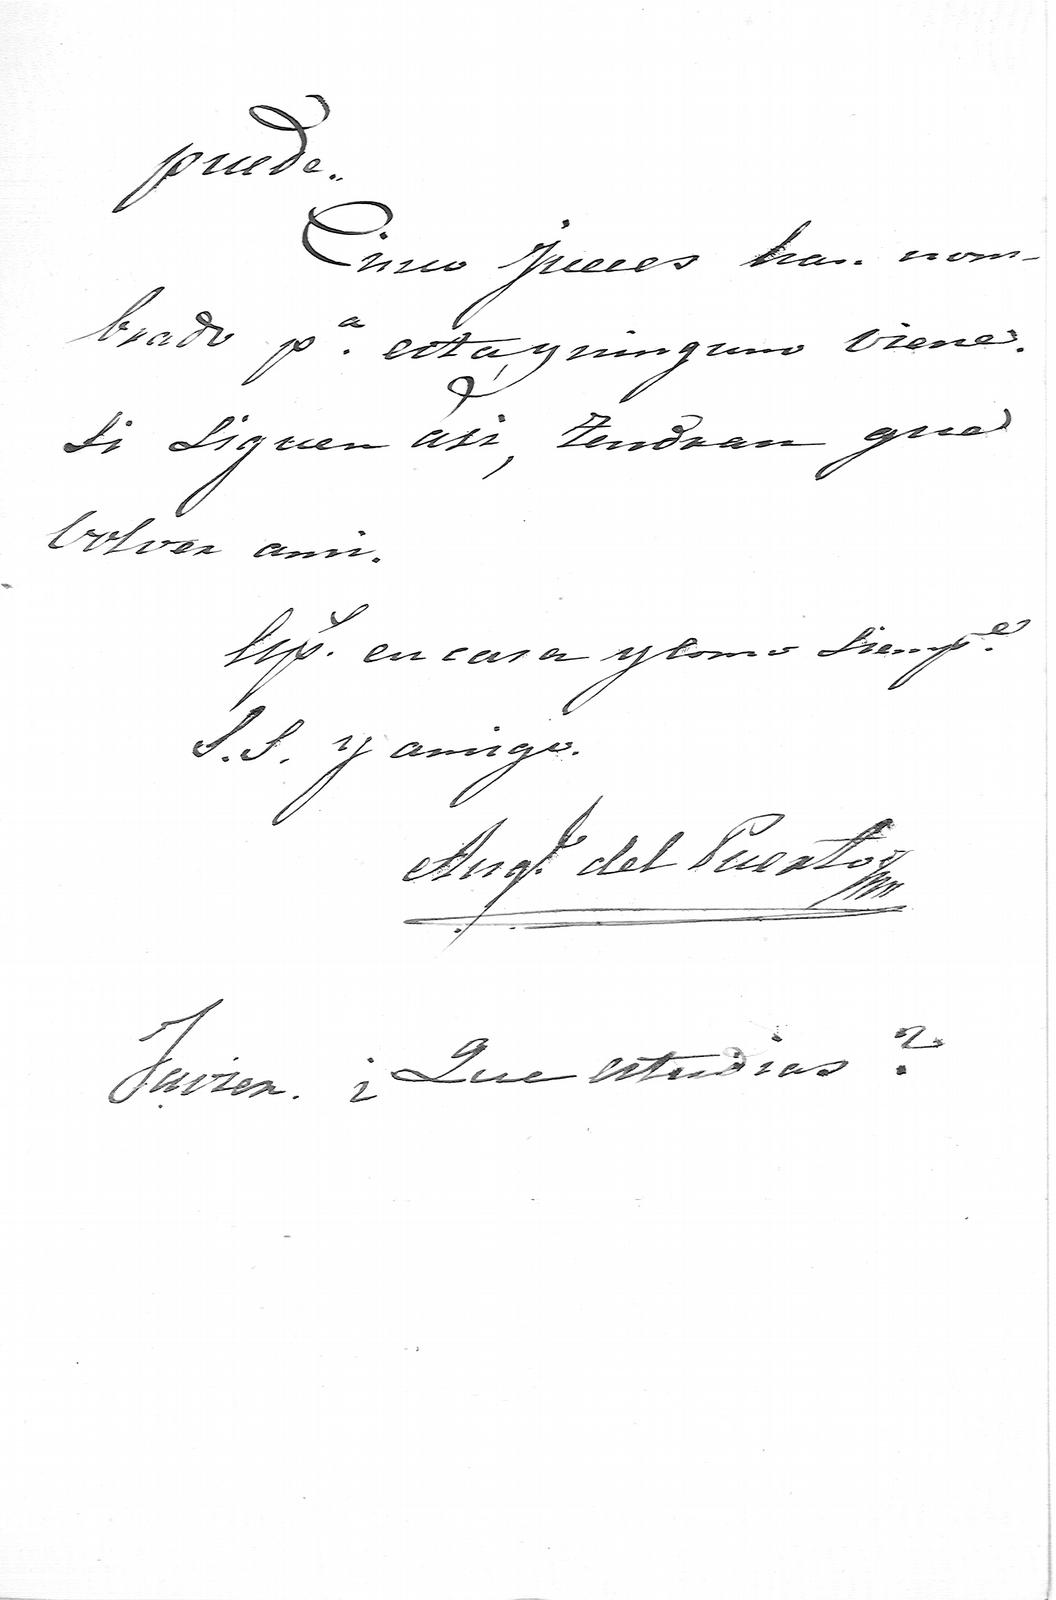 puede.
Cinco Jueces han nom-
brado pª. esta, y ninguno viene.
Si siguen asi, tendran que
bolver ami.
en casa y como siempᵉ.
S.S. y amigo.
Angˡ. del Puerto
Javier. ¿Que estudias?